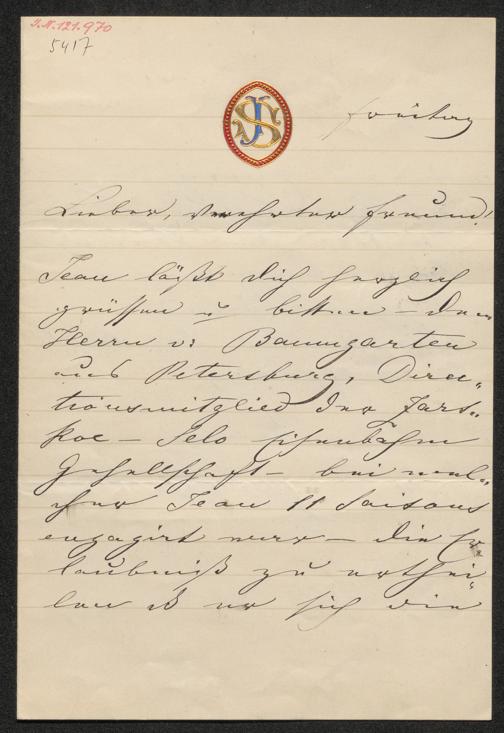 I.N. 121.970
5417
JS
Freitag
Lieber, verehrter Freund!
Jean läßt Dich herzlich
grüssen u bitten – dem
Herrn v: Baumgarten
aus Petersburg, Direc„
tionsmitglied der Zars„
koe – Selo Eisenbahn
Gesellschaft – bei wel„
cher Jean 11 Saisons
engagirt war – die Er„
laubniß zu erthei„
len daß er sich die